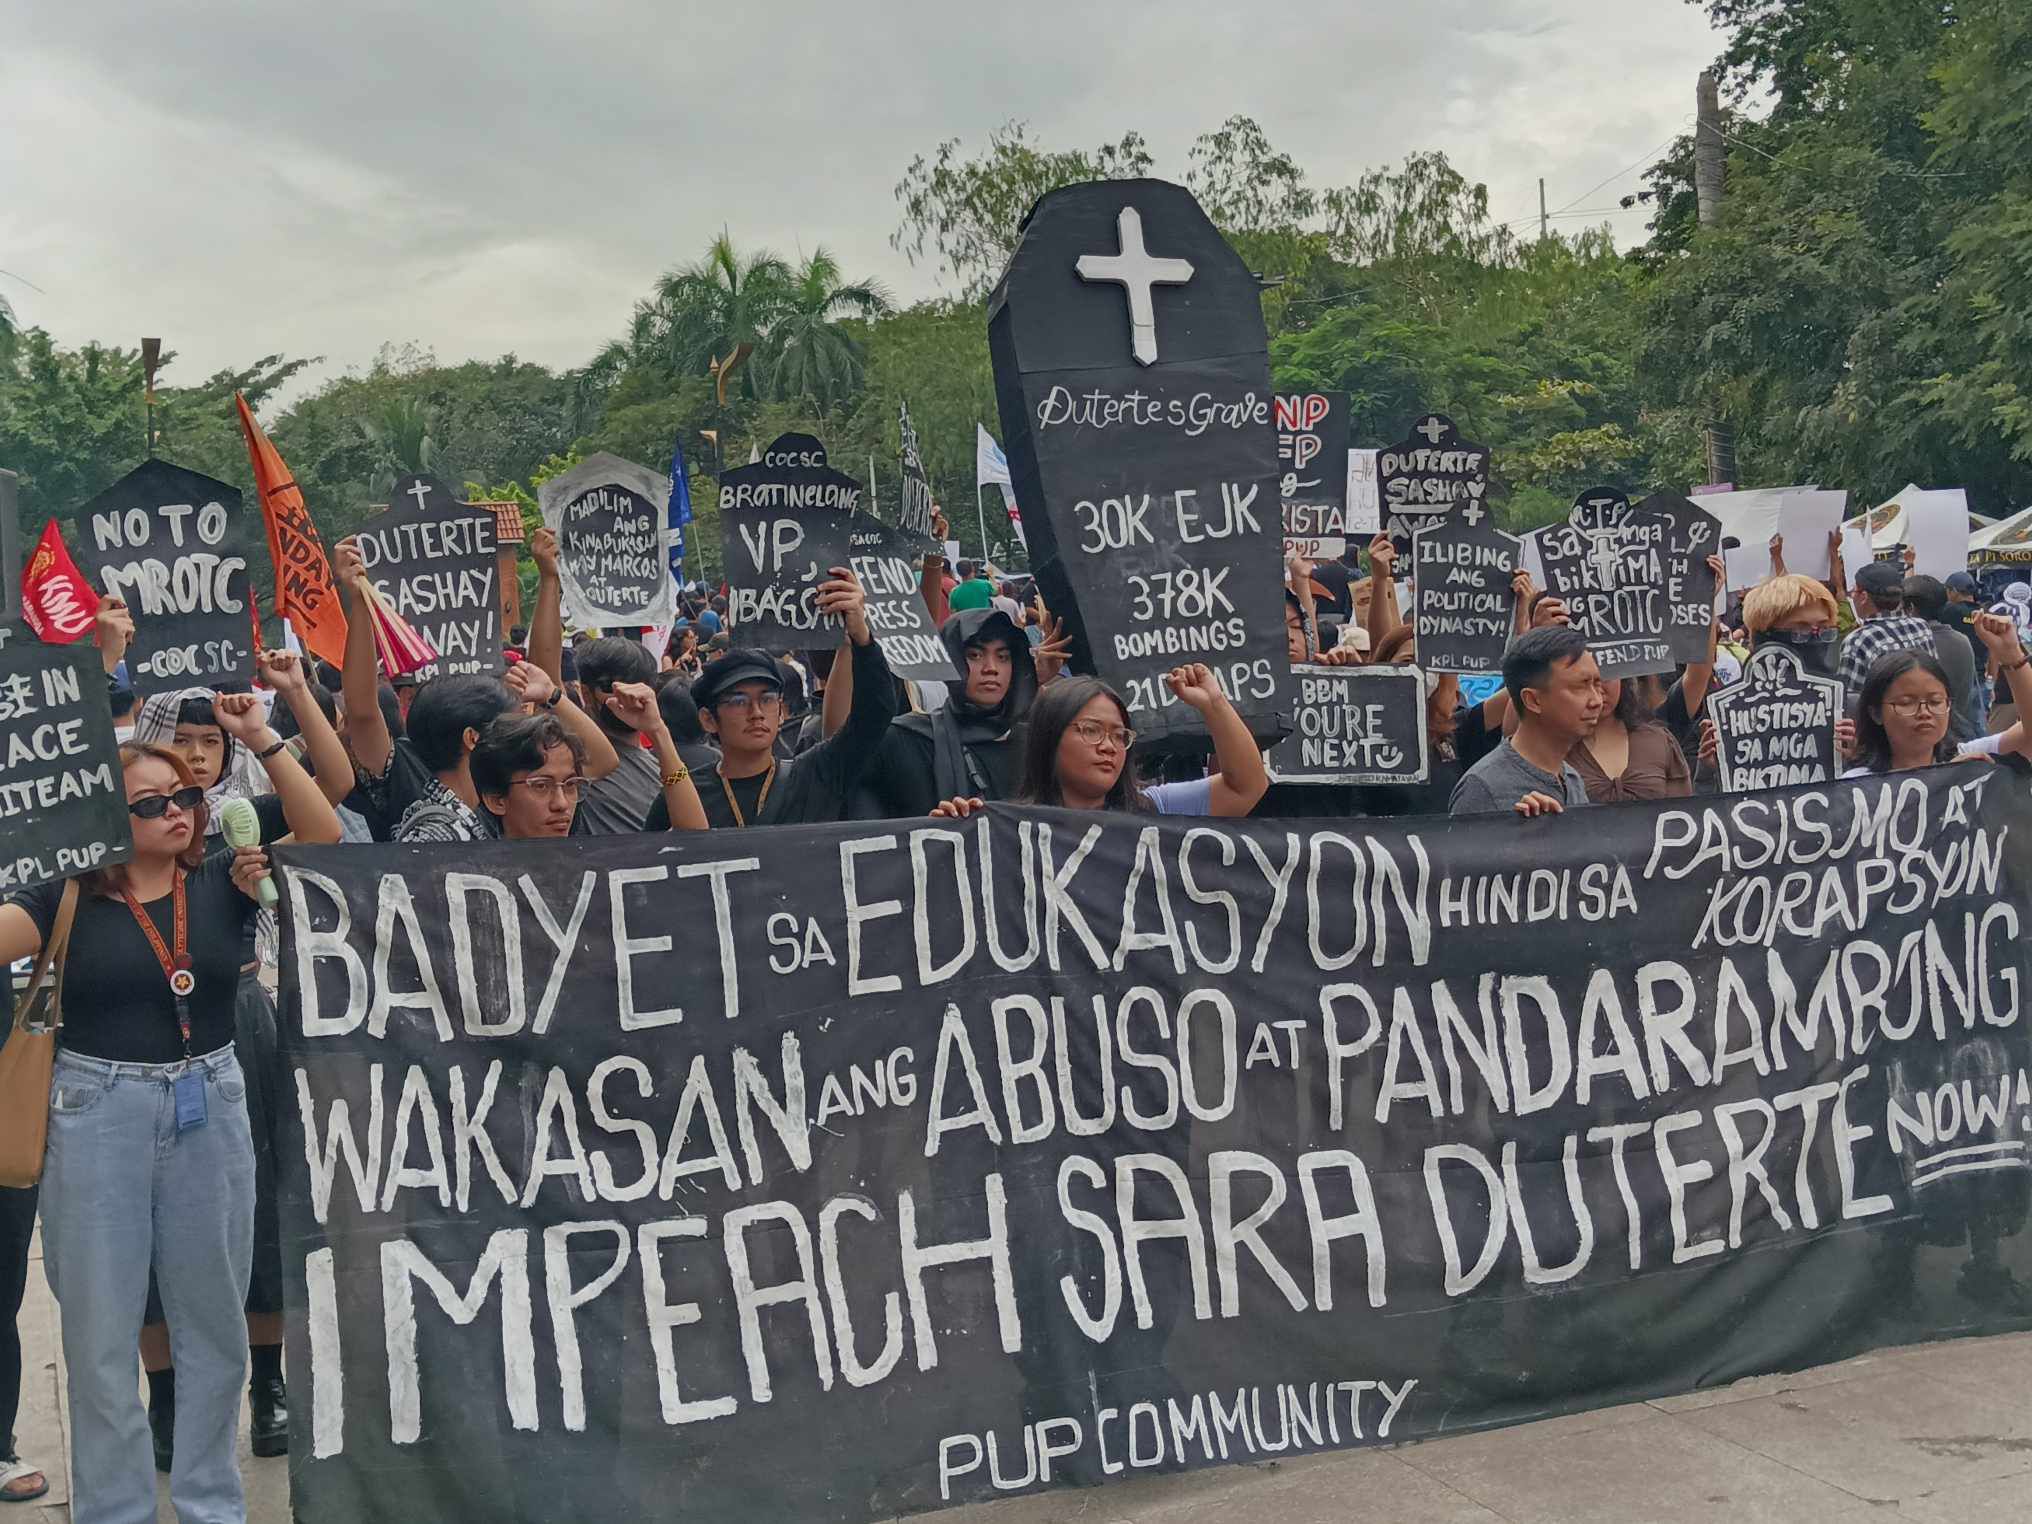 NO TO
MROTC
-COCSC-
DUTERTE
SASHAY
WAY!
KPL PUP-
MADILIM
ANG
KINABUKASAN
KAY MARCOS
AT
DUTERTE
COCSC
BRATINELANG
VP,
IBAGS
FEND
RESS
REEDOM
Duterte's Grave
30K EJK
378K
BOMBINGS
NP
FP
RISTA
PUP
DUTERTE
SASHAY
AWA
ILIBING
ANG
POLITICAL
DYNASTY!
KPL PUP
Sa mga
bikTIMA
NG
MROTC
FEND PUP
OSES
HUSTISYA
SA MGA
BIKTIMA
BBM
YOU'RE
NEXT
IN
LACE
ITEAM
KPL PUP-
KMU
BADYET SA EDUKASYON HINDI SA PASISMO AT
KORAPSYON
WAKASAN ANG ABUSO AT PANDARAMBONG
IMPEACH SARA DUTERTE NOW!
PUP COMMUNITY